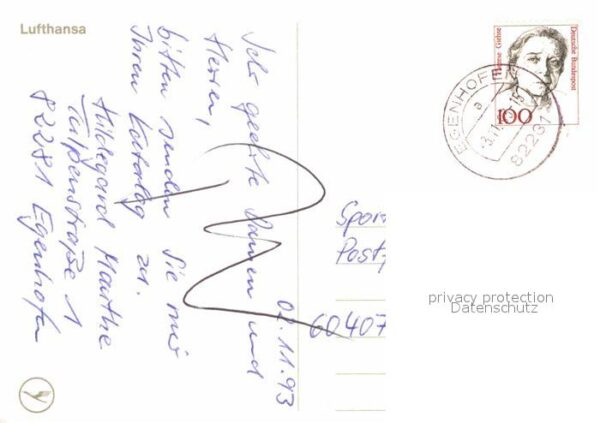 Lufthansa
02.11.93
Sehr geehrte Damen und
Herren,
bitte senden Sie mir
Ihren Katalog zu.
Hildegard Marthe
Tulpenstraße 1
82281 Egenhofen
Therese Giehse
Deutsche Bundespost
100
EGENHOFEN
a
82281
Spor
Post
60407
privacy protection
Datenschutz